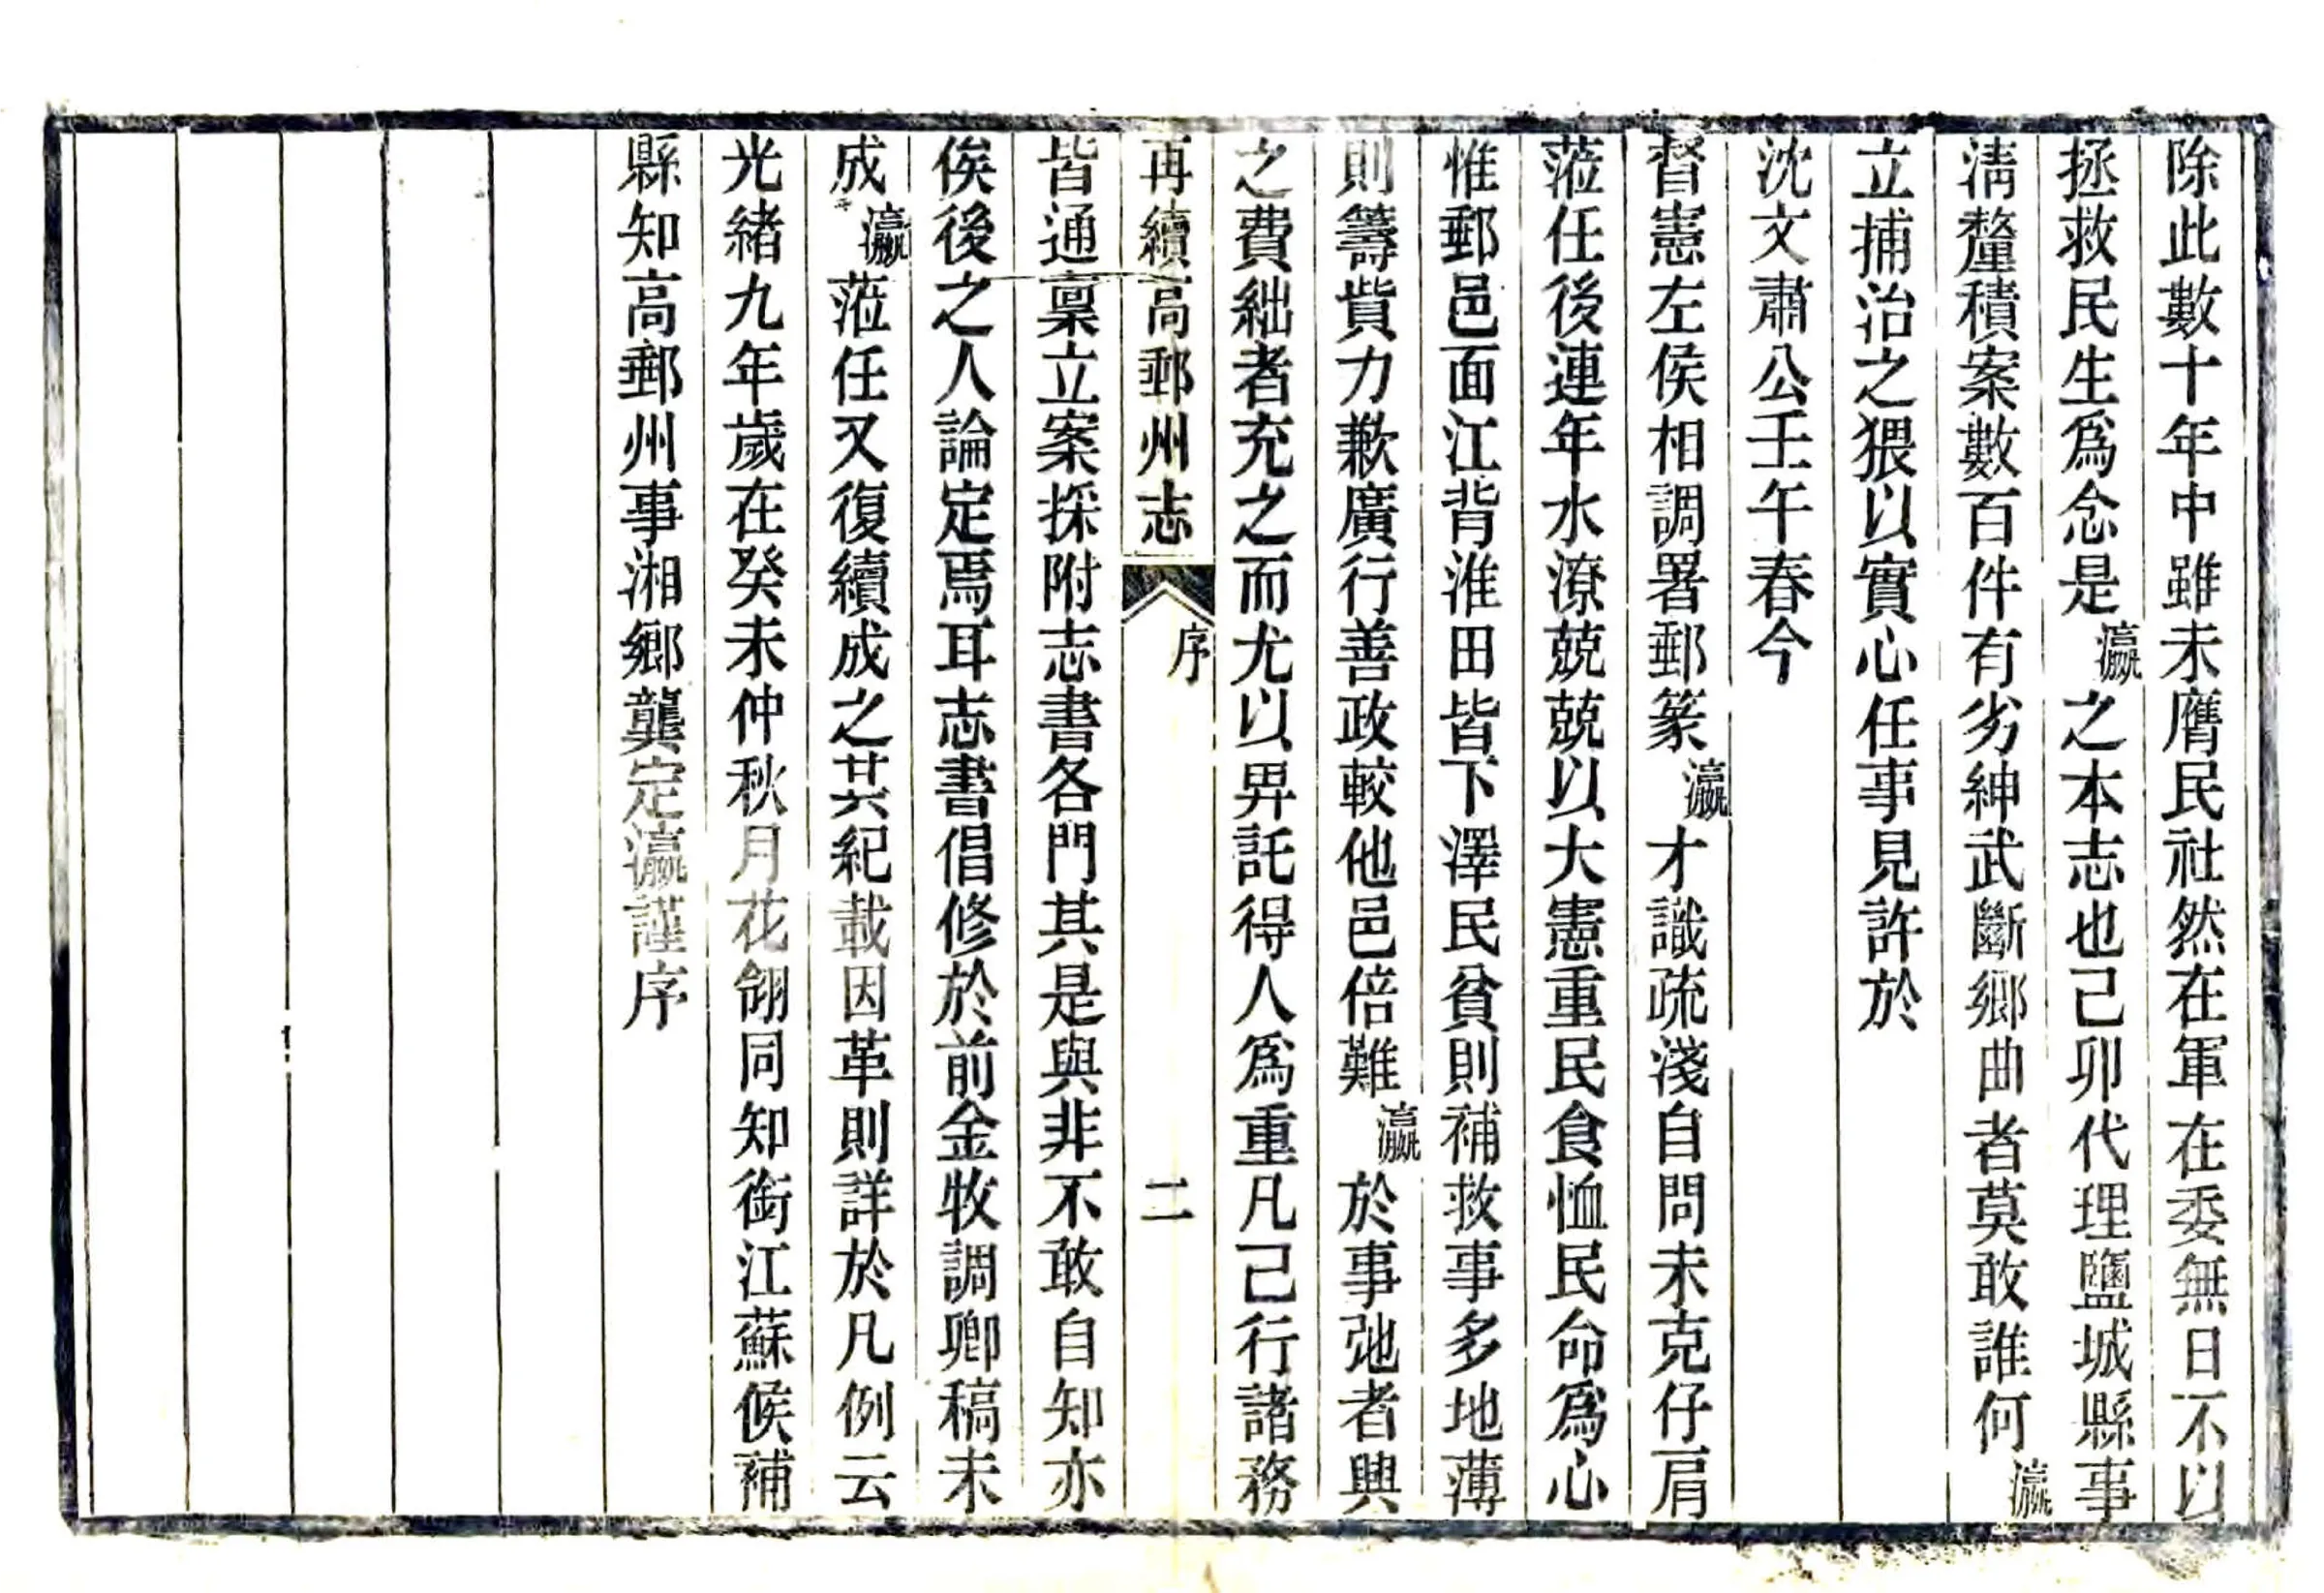 除此數十年中雖未膺民社然在軍在委無日不以
拯救民生爲念是瀛之本志也己卯代理鹽城縣事
淸釐積案數百件有劣紳武斷鄉曲者莫敢誰何瀛
立捕治之猥以實心任事見許於
沈文肅公壬午春今
督憲左侯相調署郵篆瀛才識疏淺自問未克仔肩
蒞任後連年水潦兢兢以大憲重民食恤民命爲心
惟郵邑面江背淮田皆下澤民貧則補救事多地薄
則籌貲力歉廣行善政較他邑倍難瀛於事弛者興
之費絀者充之而尤以畀託得人爲重凡己行諸務
再續高郵州志
序
二
皆通稟立案採附志書各門其是與非不敢自知亦
俟後之人論定焉耳志書倡修於前金牧調卿稿未
成瀛蒞任又復續成之其紀載因革則詳於凡例云
光緒九年歲在癸未仲秋月花翎同知銜江蘇候補
縣知高郵州事湘鄉龔定瀛謹序